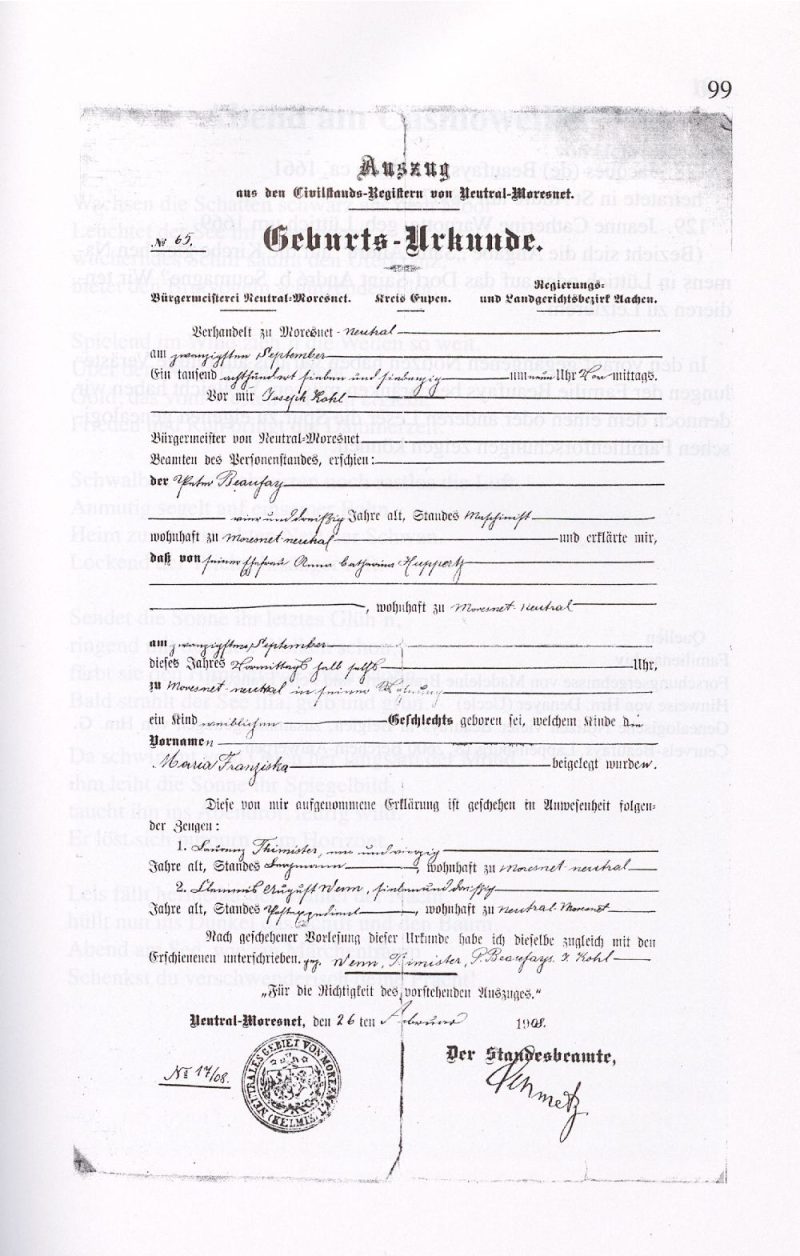 99
Auszug
aus den Civilstands-Registern von Neutral-Moresnet.
№ 65.
Geburts-Urkunde.
Bürgermeisterei Neutral-Moresnet. Kreis Eupen. Regierungs- und Landgerichtsbezirk Aachen.
Verhandelt zu Moresnet-neutral
am zwanzigsten September
Ein tausend achthundert sieben und siebenzig um Uhr Vor mittags.
Vor mir Joseph Kohl
Bürgermeister von Neutral-Moresnet
Beamten des Personenstandes, erschien:
der Peter Beaufay
vier und dreißig Jahre alt, Standes Maschinist
wohnhaft zu Moresnet-neutral und erklärte mir,
daß von seiner Ehefrau Anna Catharina Huppertz
, wohnhaft zu Moresnet-neutral
am zwanzigsten September
dieses Jahres Vormittags halb Uhr,
zu Moresnet-neutral in seiner Wohnung
ein Kind weiblichen Geschlechts geboren sei, welchem Kinde die
Vornamen
Maria Franziska beigelegt wurden.
Diese von mir aufgenommene Erklärung ist geschehen in Anwesenheit folgen-
der Zeugen:
1. Lorenz Thimister, und vierzig
Jahre alt, Standes Bergmann, wohnhaft zu Moresnet-neutral
2. August Wenn, sieben und dreißig
Jahre alt, Standes Postexpedient, wohnhaft zu Neutral-Moresnet
Nach geschehener Vorlesung dieser Urkunde habe ich dieselbe zugleich mit den
Erschienenen unterschrieben. gez. Wenn, Timister, P. Beaufays J. Kohl
„Für die Richtigkeit des vorstehenden Auszuges."
Neutral-Moresnet, den 26 ten Februar 1908.
Der Standesbeamte,
Schmetz
№ 17/08.
NEUTRALES GEBIET VON MORESNET (KELMIS)